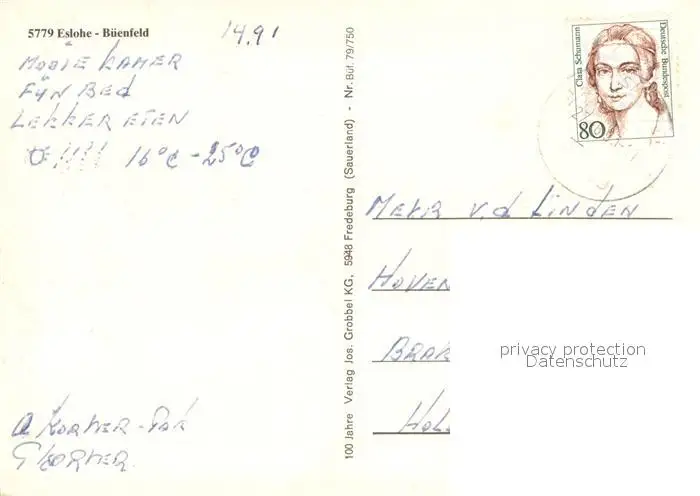 5779 Eslohe - Büenfeld
14.91
MOOIE KAMER
FÿN BED
LEKKER ETEN
!!!! 16°C - 25°C
A KORVER - PAK
G KORVER
100 Jahre Verlag Jos. Grobbel KG, 5948 Fredeburg (Sauerland) - Nr. Büf. 79/750
Clara Schumann
Deutsche Bundespost
80
MEVR V.D LINDEN
HOVEN
BRAK
HOL
privacy protection
Datenschutz